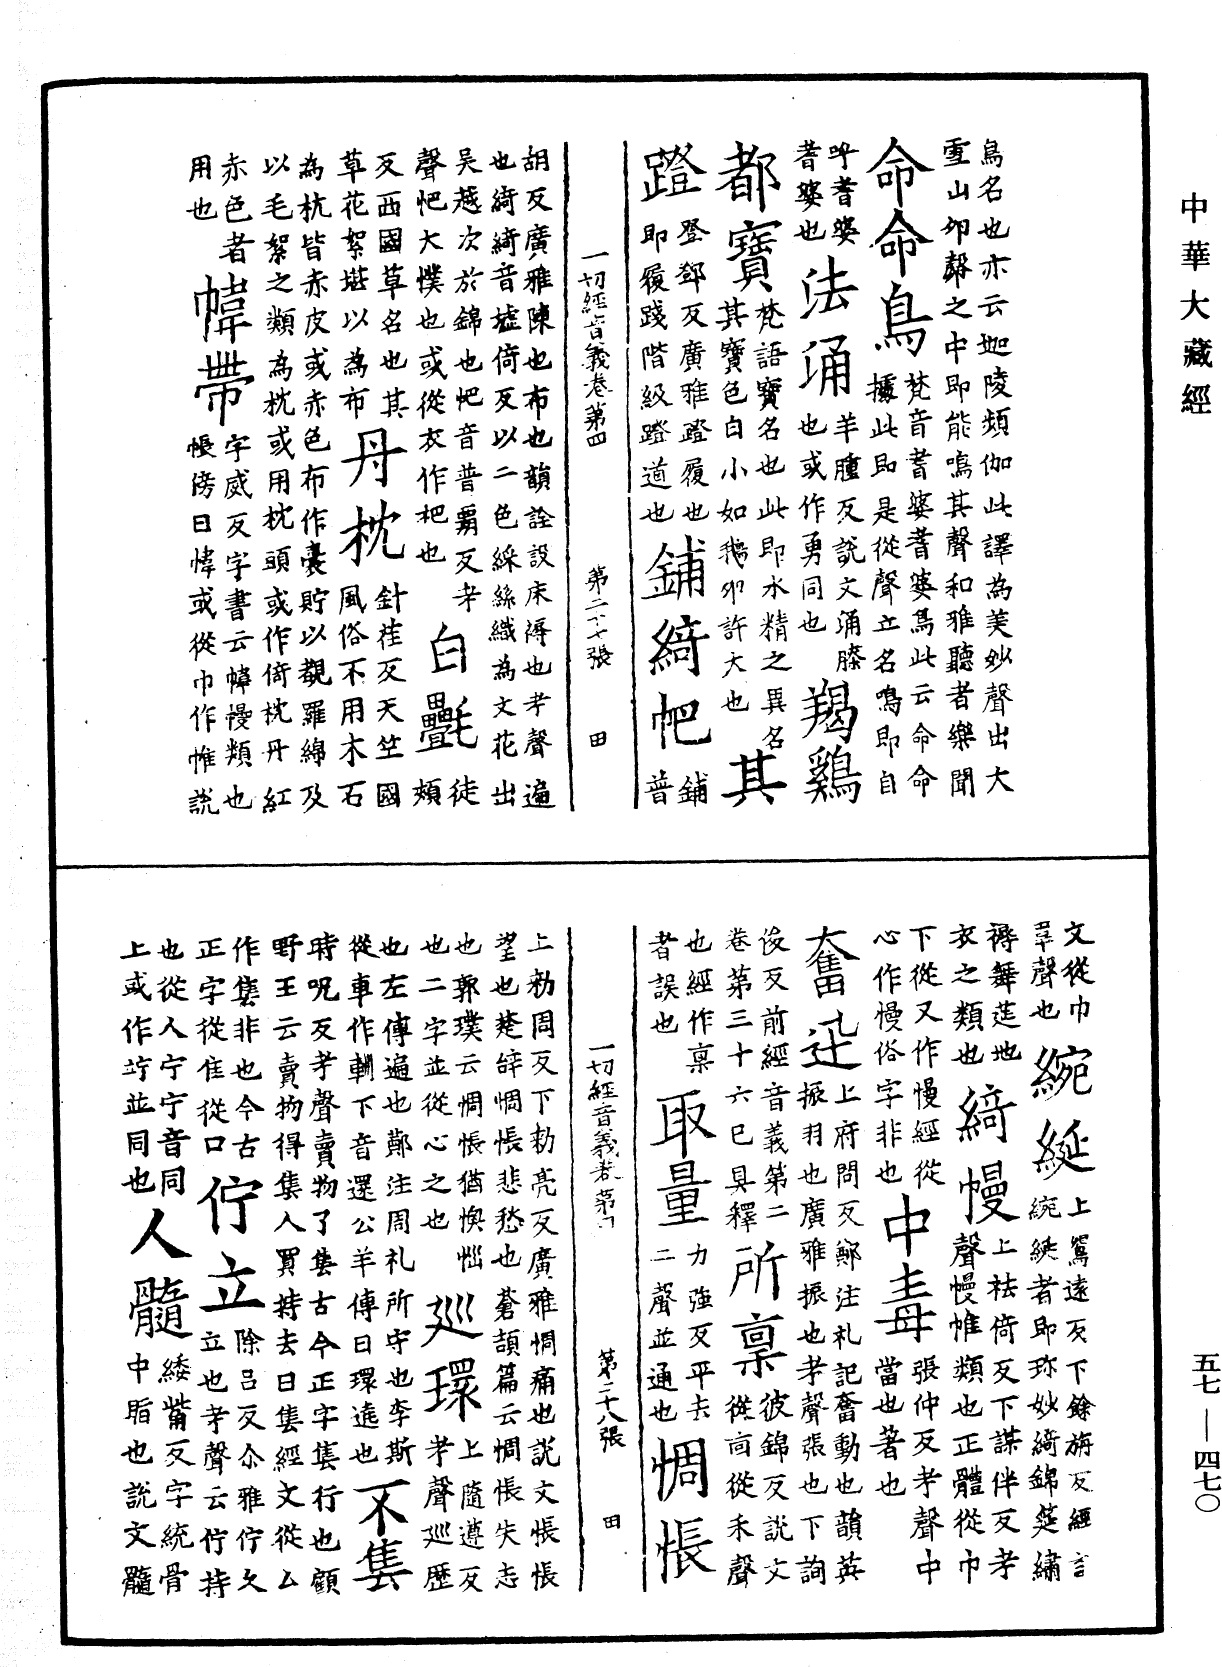 中華大藏經
鳥名也亦云迦陵頻伽此譯為美妙聲出大
雪山卵㲉之中即能鳴其聲和雅聽者樂聞
命命鳥
梵音耆婆耆婆鳥此云命命
據此即是從聲立名鳴即自
呼耆婆
耆婆也
法涌
羊腫反說文涌滕
也或作勇同也
羯鷄
都寶
梵語寶名也此即水精之異名
其寶色白小如鵝卵許大也
其
蹬
登鄧反廣雅蹬履也
即履踐階級蹬道也
鋪綺帊
鋪
普
一切經音義卷第四 第二十七張 田
胡反廣雅陳也布也韻詮設床褥也考聲遍
也綺綺音墟倚反以二色綵絲織為文花出
吳越次於錦也帊音普罵反考
聲帊大幞也或從衣作杷也
白㲲
徒
頰
反西國草名也其
草花絮堪以為布
丹枕
針荏反天竺國
風俗不用木石
為枕皆赤皮或赤色布作囊貯以覩羅綿及
以毛絮之類為枕或用枕頭或作倚枕丹紅
赤色者
用也
幃帶
字威反字書云幃幔類也
帳傍曰幃或從巾作帷說
文從巾
聲也
綩綖
上鴛遠反下餘旃反經言
綩綖者即珎妙綺錦筵繡
褥舞莚地
衣之類也
綺幔
上祛倚反下謀伴反考
聲幔帷類也正體從巾
下從又作慢經從
心作慢俗字非也
中毒
張仲反考聲中
當也著也
奮迅
上府問反鄭注礼記奮動也韻英
振羽也廣雅振也考聲張也下詢
後反前經音義第二
卷第三十六已具釋
所稟
彼錦反說文
從㐭從禾聲
也經作禀
者誤也
取量
力強反平去
二聲並通也
惆悵
一切經音義卷第四 第二十八張 田
上勑周反下勑亮反廣雅惆痛也說文悵悵
望也楚辞惆悵悲愁也蒼頡篇云惆悵失志
也郭璞云惆悵猶懊惱
也二字並從心之也
巡環
上隨遵反
考聲巡歷
也左傳遍也鄭注周礼所守也李斯
從車作輣下音還公羊傳曰環遶也
不售
時呪反考聲賣物了售古今正字售行也顧
野王云賣物得售人買持去曰售經文從厶
作售非也今古
正字從隹從口
佇立
除呂反尒雅佇久
立也考聲云佇持
也從人宁宁音同
上或作竚並同也
人髓
綏觜反字統骨
中脂也說文髓
五七—四七〇